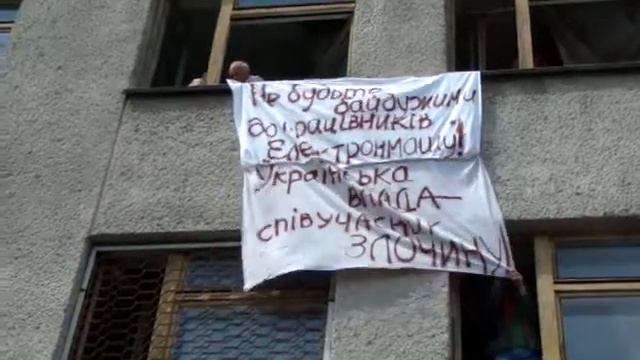 Не будьте
байдужими
до працівників
Електронмашу!
Українська
влада—
співучасник
злочину!